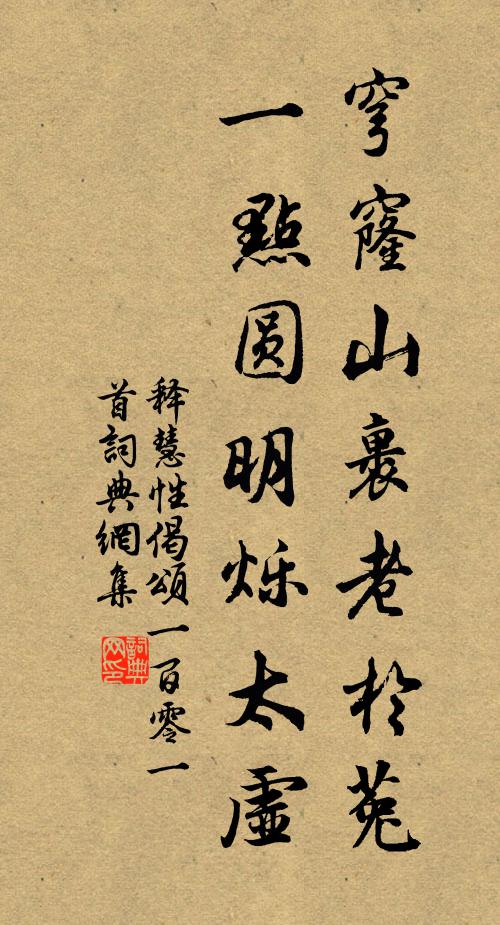 穹窿山裹老於菟
一點圆明烁太虛
释慧性偈頌一百零一
首詞典網集
詞典
网印